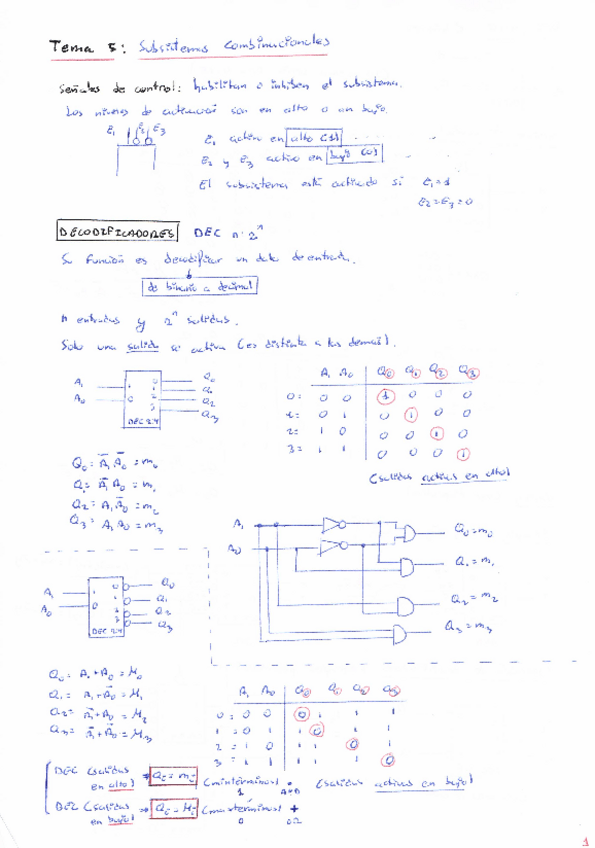 Tema 5: Subsistemas Combinacionales
Señales de control: habilitan o inhiben el subsistema.
Los niveles de activación son en alto o en bajo.
E₁ E₂ E₃
E₁ activa en alto (1)
E₂ y E₃ activa en bajo (0)
El subsistema está activado si E₁=1
E₂=E₃=0
DECODIFICADORES DEC n:2ⁿ
Su función es decodificar un dato de entrada.
de binario a decimal
n entradas y 2ⁿ salidas.
Solo una salida se activa (es distinta a las demás).
A₁ A₀ Q₀ Q₁ Q₂ Q₃
0= 0 0 1 0 0 0
1= 0 1 0 1 0 0
2= 1 0 0 0 1 0
3= 1 1 0 0 0 1
(salidas activas en alto)
A₁ A₀ Q₀ Q₁ Q₂ Q₃
DEC 2:4
Q₀ = A̅₁ A̅₀ = m₀
Q₁ = A̅₁ A₀ = m₁
Q₂ = A₁ A̅₀ = m₂
Q₃ = A₁ A₀ = m₃
A₁
A₀
Q₀=m₀
Q₁=m₁
Q₂=m₂
Q₃=m₃
A₁ A₀ Q₀ Q₁ Q₂ Q₃
DEC 2:4
Q₀ = A₁+A₀ = M₀
Q₁ = A₁+A̅₀ = M₁
Q₂ = A̅₁+A₀ = M₂
Q₃ = A̅₁+A̅₀ = M₃
A₁ A₀ Q₀ Q₁ Q₂ Q₃
0= 0 0 0 1 1 1
1= 0 1 1 0 1 1
2= 1 0 1 1 0 1
3= 1 1 1 1 1 0
(salidas activas en bajo)
DEC (salidas en alto) ⇒ Qᵢ = mᵢ (minterminos) •
1 AND
DEC (salidas en bajo) ⇒ Qᵢ = Mᵢ (maxtérminos) +
0 OR
1